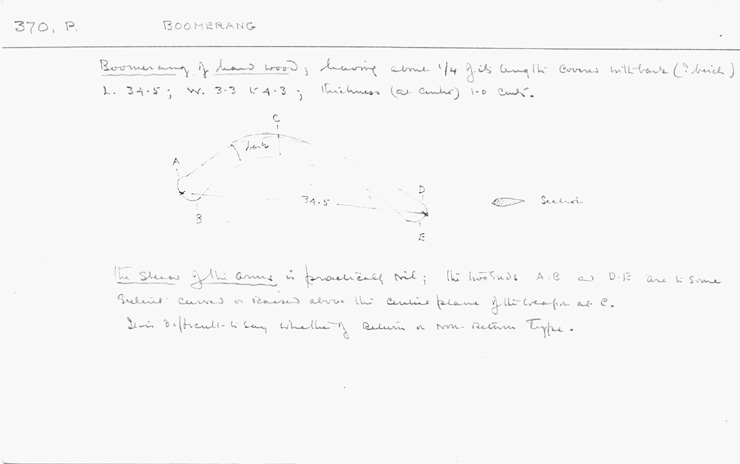 370, P. BOOMERANG
Boomerang of hard wood; having about 1/4 of its length covered with bark (? birch)
L. 34.5; W. 3.3 to 4.3; thickness (at centre) 1.0 cmts.
C
bark
A
34.5
D
B
E
Section
The skew of the arms is practically nil; the two ends A-B and D-E are to some
extent curved or raised above the central plane of the weapon at C.
It is difficult to say whether of Return or Non-Return Type.